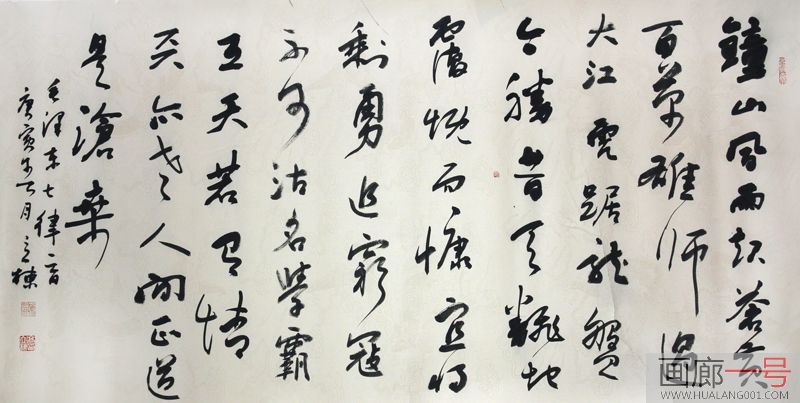 鐘山風雨起蒼黃
百萬雄師過
大江虎踞龍盤
今勝昔天翻地
覆慨而慷宜将
剩勇追窮寇
不可沽名學霸
王天若有情
天亦老人间正道
是滄桑
毛泽东七律一首
庚寅年月立棟
画廊一号
WWW.HUALANG001.COM